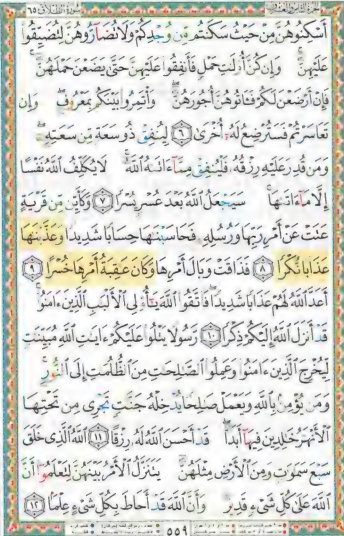 سورة الطلاق ٦٥
أَسْكِنُوهُنَّ مِنْ حَيْثُ سَكَنتُم مِّن وُجْدِكُمْ وَلَا تُضَآرُّوهُنَّ لِتُضَيِّقُوا۟
عَلَيْهِنَّ ۚ وَإِن كُنَّ أُو۟لَٰتِ حَمْلٍ فَأَنفِقُوا۟ عَلَيْهِنَّ حَتَّىٰ يَضَعْنَ حَمْلَهُنَّ ۚ
فَإِنْ أَرْضَعْنَ لَكُمْ فَـَٔاتُوهُنَّ أُجُورَهُنَّ ۖ وَأْتَمِرُوا۟ بَيْنَكُم بِمَعْرُوفٍ ۖ وَإِن
تَعَاسَرْتُمْ فَسَتُرْضِعُ لَهُۥٓ أُخْرَىٰ ٦ لِيُنفِقْ ذُو سَعَةٍ مِّن سَعَتِهِۦ ۖ
وَمَن قُدِرَ عَلَيْهِ رِزْقُهُۥ فَلْيُنفِقْ مِمَّآ ءَاتَىٰهُ ٱللَّهُ ۚ لَا يُكَلِّفُ ٱللَّهُ نَفْسًا
إِلَّا مَآ ءَاتَىٰهَا ۚ سَيَجْعَلُ ٱللَّهُ بَعْدَ عُسْرٍ يُسْرًا ٧ وَكَأَيِّن مِّن قَرْيَةٍ
عَتَتْ عَنْ أَمْرِ رَبِّهَا وَرُسُلِهِۦ فَحَاسَبْنَٰهَا حِسَابًا شَدِيدًا وَعَذَّبْنَٰهَا
عَذَابًا نُّكْرًا ٨ فَذَاقَتْ وَبَالَ أَمْرِهَا وَكَانَ عَٰقِبَةُ أَمْرِهَا خُسْرًا ٩
أَعَدَّ ٱللَّهُ لَهُمْ عَذَابًا شَدِيدًا ۖ فَٱتَّقُوا۟ ٱللَّهَ يَٰٓأُو۟لِى ٱلْأَلْبَٰبِ ٱلَّذِينَ ءَامَنُوا۟ ۚ
قَدْ أَنزَلَ ٱللَّهُ إِلَيْكُمْ ذِكْرًا ١٠ رَّسُولًا يَتْلُوا۟ عَلَيْكُمْ ءَايَٰتِ ٱللَّهِ مُبَيِّنَٰتٍ
لِّيُخْرِجَ ٱلَّذِينَ ءَامَنُوا۟ وَعَمِلُوا۟ ٱلصَّٰلِحَٰتِ مِنَ ٱلظُّلُمَٰتِ إِلَى ٱلنُّورِ ۚ
وَمَن يُؤْمِنۢ بِٱللَّهِ وَيَعْمَلْ صَٰلِحًا يُدْخِلْهُ جَنَّٰتٍ تَجْرِى مِن تَحْتِهَا
ٱلْأَنْهَٰرُ خَٰلِدِينَ فِيهَآ أَبَدًا ۖ قَدْ أَحْسَنَ ٱللَّهُ لَهُۥ رِزْقًا ١١ ٱللَّهُ ٱلَّذِى خَلَقَ
سَبْعَ سَمَٰوَٰتٍ وَمِنَ ٱلْأَرْضِ مِثْلَهُنَّ يَتَنَزَّلُ ٱلْأَمْرُ بَيْنَهُنَّ لِتَعْلَمُوٓا۟ أَنَّ
ٱللَّهَ عَلَىٰ كُلِّ شَىْءٍ قَدِيرٌ وَأَنَّ ٱللَّهَ قَدْ أَحَاطَ بِكُلِّ شَىْءٍ عِلْمًۢا ١٢
٥٥٩